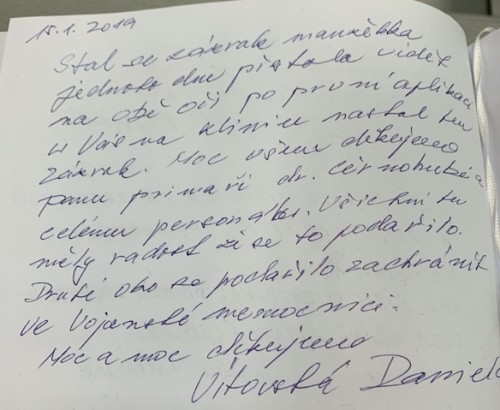 15.1.2019
Stal se zázrak manželka
jednoho dne přestala vidět
na obě oči po první aplikaci
u Vás na klinice nastal ten
zázrak. Moc všem děkujeme
panu primáři dr. Černohubé a
celému personálu. Všichni tu
měly radost že se to podařilo.
Druhé oko se podařilo zachránit
ve Vojenské nemocnici.
Moc a moc děkujeme
Vítovská Daniela